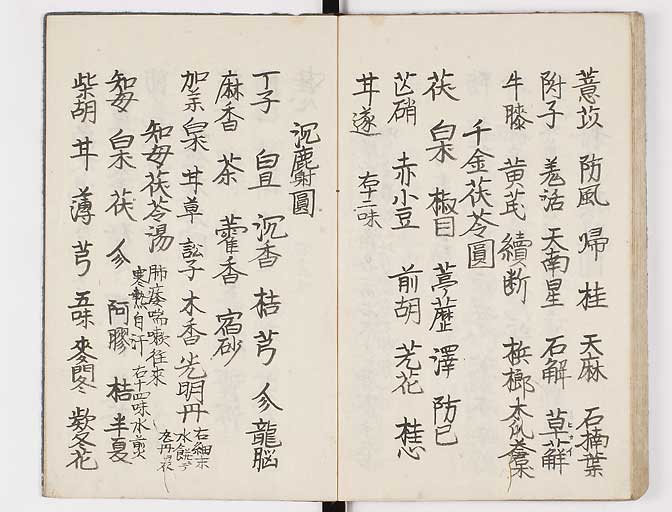 薏苡 防風 帰 桂 天麻 石楠葉
附子 羗活 天南星 石解 草薢
牛膝 黄芪 續断 梹榔 木瓜
千金茯苓圓
茯 椒目 葶藶 澤 防巳
芒硝 赤小豆 前胡 芫花 桂心
甘遂 右十二味
沉麝圓
丁子 白豆 沉香 桔 芎 参 龍脳
麻香 茶 藿香 宿砂
甘草 訟子 木香 光明丹 右細末
知母茯苓湯 肺痿喘嗽往来
寒熱自汗 右十四味水煎
知母 茯 参 阿膠 桔 半夏
柴胡 甘 薄 芎 五味 麥門冬 欵冬花